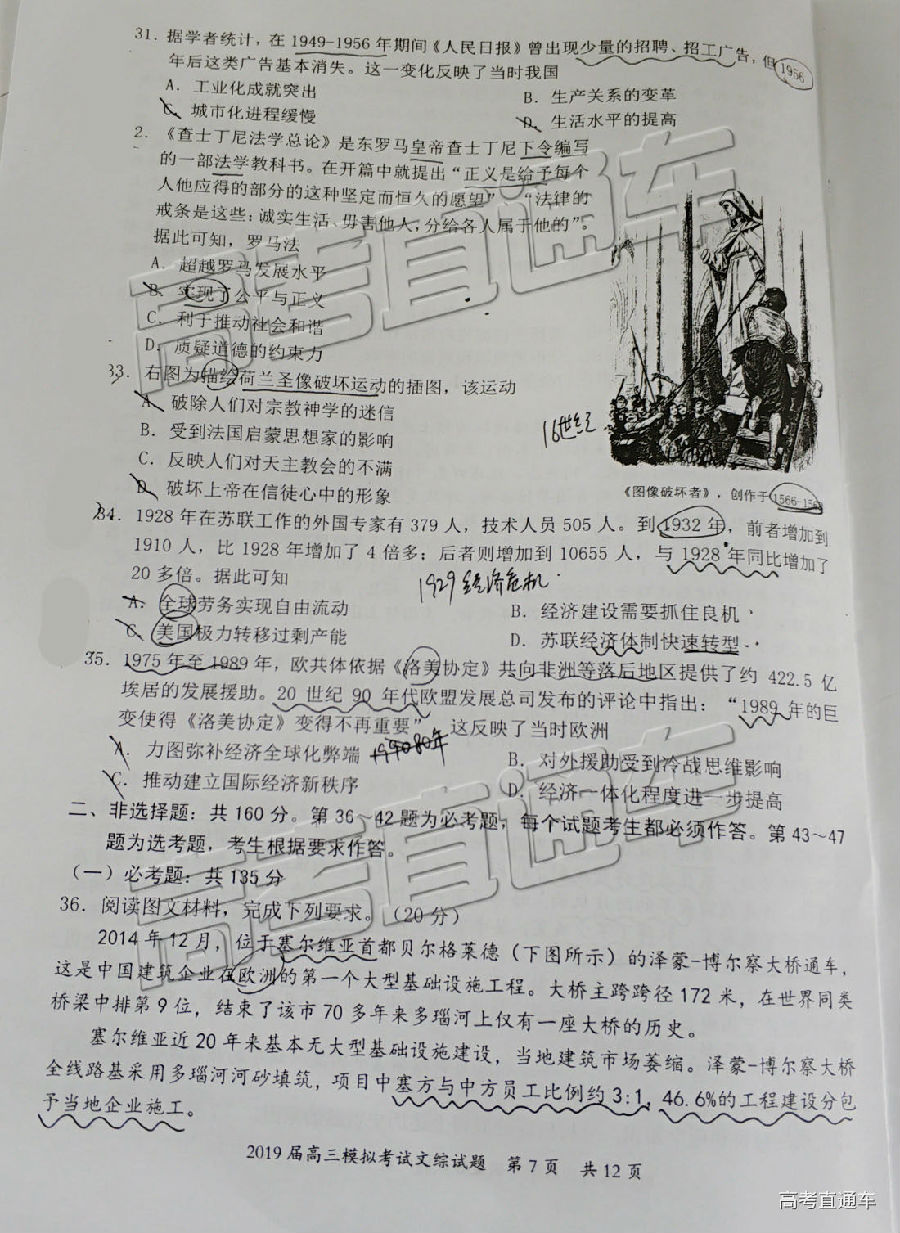 31. 据学者统计，在1949-1956年期间《人民日报》曾出现少量的招聘、招工广告，但1956
年后这类广告基本消失。这一变化反映了当时我国
A. 工业化成就突出
B. 生产关系的变革
C. 城市化进程缓慢
D. 生活水平的提高
2. 《查士丁尼法学总论》是东罗马皇帝查士丁尼下令编写
的一部法学教科书。在开篇中就提出“正义是给予每个
人他应得的部分的这种坚定而恒久的愿望”、“法律的
戒条是这些：诚实生活、毋害他人，分给各人属于他的”。
据此可知，罗马法
A. 超越罗马发展水平
B. 实现了公平与正义
C. 利于推动社会和谐
D. 质疑道德的约束力
33. 右图为描绘荷兰圣像破坏运动的插图，该运动
A. 破除人们对宗教神学的迷信
B. 受到法国启蒙思想家的影响
16世纪
C. 反映人们对天主教会的不满
D. 破坏上帝在信徒心中的形象
《图像破坏者》，创作于1566-156
34. 1928年在苏联工作的外国专家有379人，技术人员505人。到1932年，前者增加到
1910人，比1928年增加了4倍多；后者则增加到10655人，与1928年同比增加了
20多倍。据此可知
1929经济危机
A. 全球劳务实现自由流动
B. 经济建设需要抓住良机
C. 美国极力转移过剩产能
D. 苏联经济体制快速转型
35. 1975年至1989年，欧共体依据《洛美协定》共向非洲等落后地区提供了约422.5亿
埃居的发展援助。20世纪90年代欧盟发展总司发布的评论中指出：“1989年的巨
变使得《洛美协定》变得不再重要”。这反映了当时欧洲
A. 力图弥补经济全球化弊端
B. 对外援助受到冷战思维影响
C. 推动建立国际经济新秩序
D. 经济一体化程度进一步提高
二、非选择题：共160分。第36～42题为必考题，每个试题考生都必须作答。第43～47
题为选考题，考生根据要求作答。
（一）必考题：共135分
36. 阅读图文材料，完成下列要求。（20分）
2014年12月，位于塞尔维亚首都贝尔格莱德（下图所示）的泽蒙-博尔察大桥通车，
这是中国建筑企业在欧洲的第一个大型基础设施工程。大桥主跨跨径172米，在世界同类
桥梁中排第9位，结束了该市70多年来多瑙河上仅有一座大桥的历史。
塞尔维亚近20年来基本无大型基础设施建设，当地建筑市场萎缩。泽蒙-博尔察大桥
全线路基采用多瑙河河砂填筑，项目中塞方与中方员工比例约3:1，46.6%的工程建设分包
予当地企业施工。
2019届高三模拟考试文综试题 第7页 共12页
高考直通车
高考直通车
高考直通车